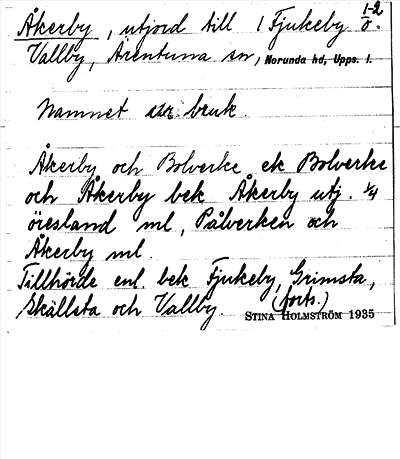 Åkerby, utjord till 1 Fjukeby 1-2 o.
Vallby, Ärentuna sn, Norunda hd, Upps. l.
Namnet ur bruk.
Åkerby och Bolverke ek Bolverke
och Åkerby bek Åkerby utj. 1/4
öresland ml, Pålverken och
Åkerby ml.
Tillhörde enl. bek Fjukeby, Grimsta,
Skällsta och Vallby. (forts.)
STINA HOLMSTRÖM 1935